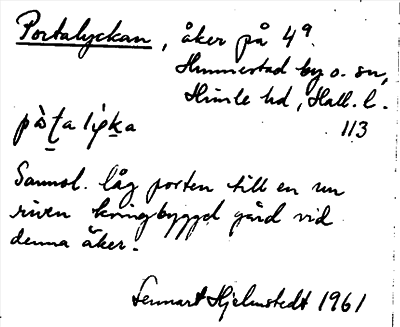 Portalyckan, åker på 4ª
Hunnestad by o. sn,
Himle hd, Hall. l.
113
Sannol. låg porten till en nu
riven kringbyggd gård vid
denna åker.
Lennart Hjelmstedt 1961